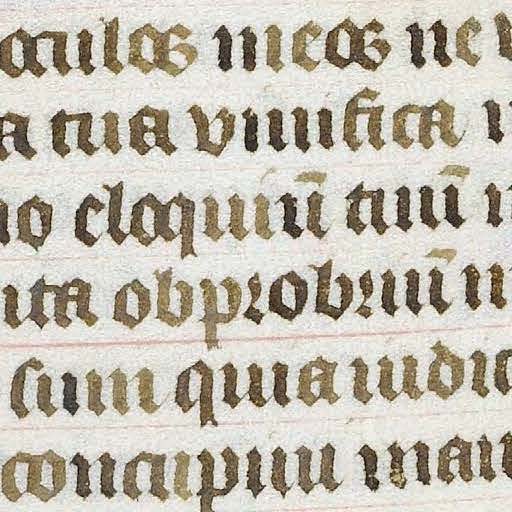 oculos meos ne v
a tua viuifica
uo eloquiũ tuũ
uta obprobriũ m
sum quia iudic
concupiui man